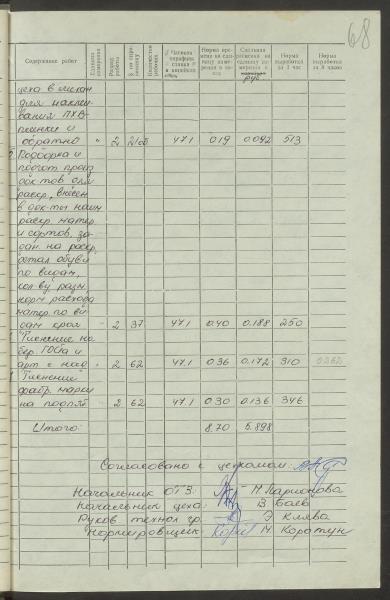 68
Содержание работ
Единица измерения
Разряд работы
Количество рабочих
Часовая тарифная ставка в копейках
Норма времени на единицу измерения в часах
Сдельная расценка на единицу измерения в руб.
Норма выработки за 1 час
Норма выработки за 8 часов
цеха в
для наклеивания ПХВ-
пленки и
обратно " 2 47.1 0.19 0.092 513
Подборка и
подгот. произ
док-тов для
раскр., внесен.
в док-ты наим
раскр. матер.
и сортов, за-
дан. на раскр.
детал. обуви
по видам,
кол-ву, разм,
норм расхода
матер. по ви-
дам кроя " 2 37 47.1 0.40 0.188 250
Тиснение но-
мер. ГОСТа и
арт. " 2 62 47.1 0.36 0.172 310
Тиснение
фабр. марки
на подпят. " 2 62 47.1 0.30 0.136 346
Итого: 8.70 5.898
Согласовано с цехкомом:
Начальник ОТЗ: М. Ларионова
Начальник цеха: В. Баев
Руков. технол. гр. Э. Клява
Нормировщик: М. Коротун